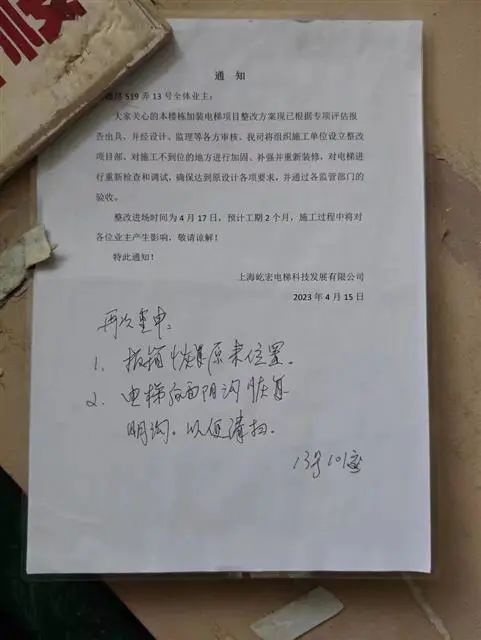 通 知
519 弄 13 号全体业主：
大家关心的本楼栋加装电梯项目整改方案现已根据专项评估报
告出具，并经设计、监理等各方审核。我司将组织施工单位设立整改
项目部，对施工不到位的地方进行加固、补强并重新装修，对电梯进
行重新检查和调试，确保达到原设计各项要求，并通过各监管部门的
验收。
整改进场时间为 4 月 17 日，预计工期 2 个月，施工过程中将对
各位业主产生影响，敬请谅解！
特此通知！
上海屹宏电梯科技发展有限公司
2023 年 4 月 15 日
再次重申：
1. 报箱恢复原来位置.
2. 电梯后面阴沟恢复
明沟。以便清扫.
13号101室